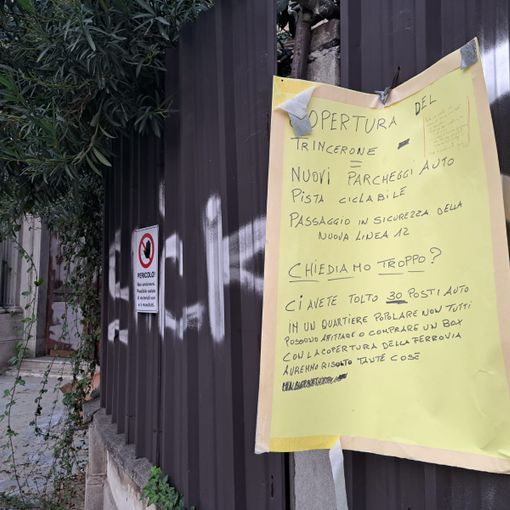 COPERTURA DEL
TRINCERONE
=
NUOVI PARCHEGGI AUTO
PISTA CICLABILE
PASSAGGIO IN SICUREZZA DELLA
NUOVA LINEA 12
CHIEDIAMO TROPPO?
CI AVETE TOLTO 30 POSTI AUTO
IN UN QUARTIERE POPOLARE NON TUTTI
POSSONO AFFITTARE O COMPRARE UN BOX
CON LA COPERTURA DELLA FERROVIA
AVREMMO RISOLTO TANTE COSE
PERICOLO!